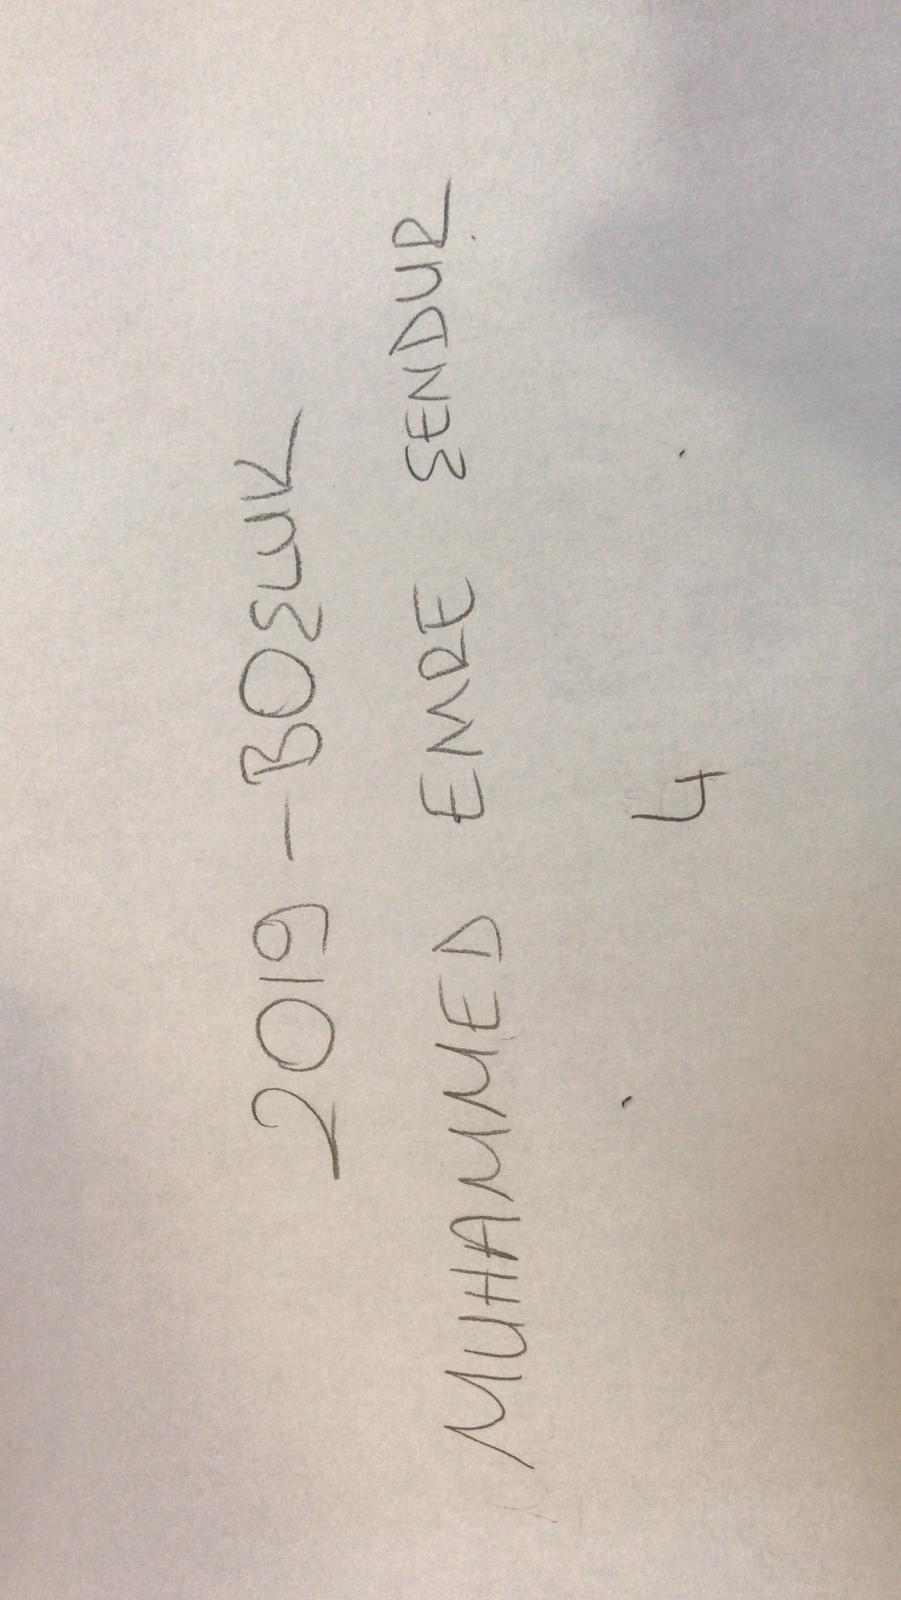 2019 - BOŞLUK
MUHAMMED EMRE ŞENDUR
4